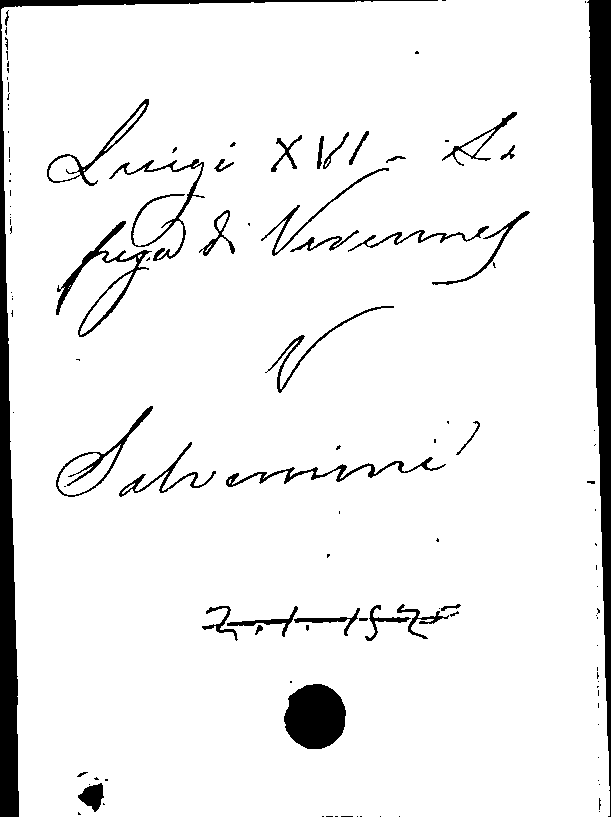 Luigi XVI - La
fuga di Varennes
V
Salvemini